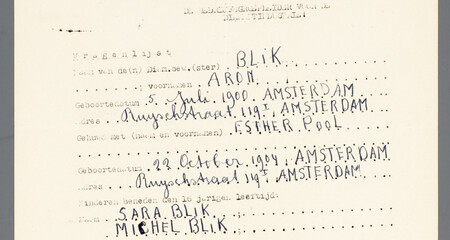 Vragenlijst
Naam van de(n) BLIK
voornamen ARON
Geboortedatum 5 Juli 1900, AMSTERDAM
adres Ruyschstraat 119I, AMSTERDAM
Gehuwd met (naam en voornamen) ESTHER POOL
Geboortedatum 22 October 1904, AMSTERDAM
adres Ruyschstraat 119I AMSTERDAM
Kinderen beneden den 16 jarigen leeftijd:
Naam SARA BLIK
MICHEL BLIK